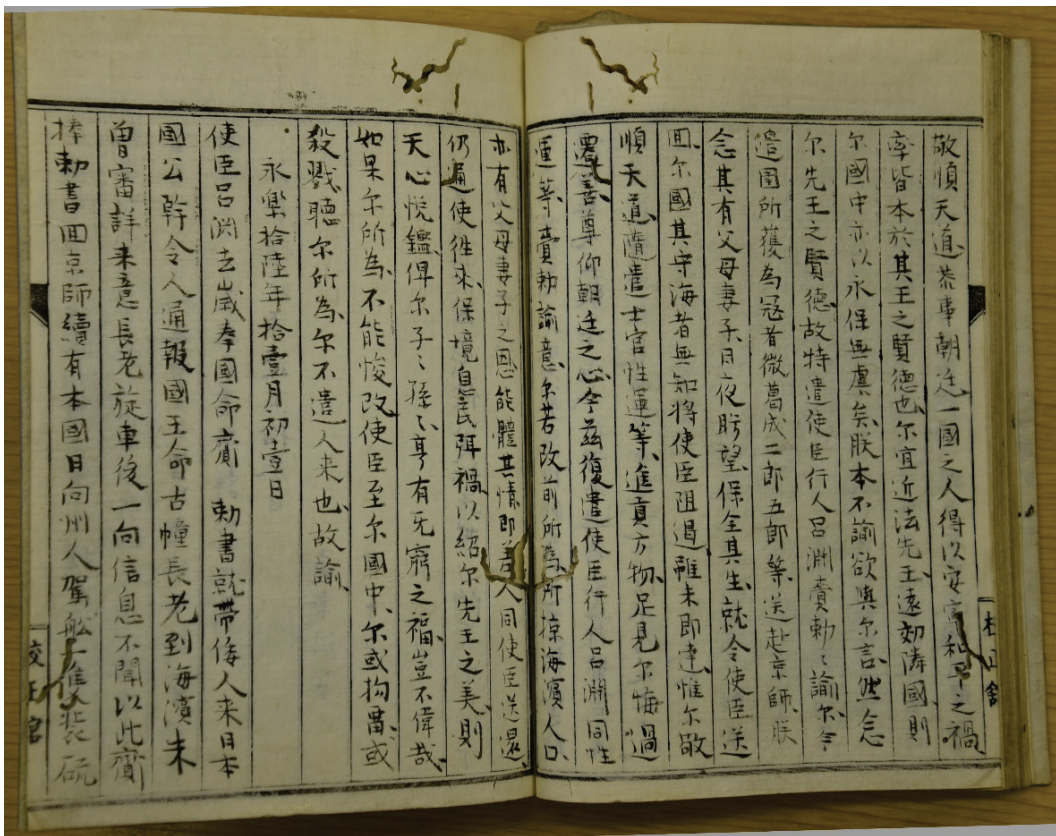 敬順天道恭事朝廷一國之人得以安富和平之禍
率皆本於其王之賢德也尔宜近法先王遠効隣國則
尔國中亦以永保無虞矣朕本不諭欲與尔言然念
尔先王之賢德故特遣使臣行人呂淵賫勅〻諭尔今
邊圉所獲為冦者微葛成二郎五郎等送赴京師朕
念其有父母妻子日夜盻望保全其生就令使臣送
回尔國其守海者無知将使臣阻遏雖未即達惟尔敬
順天道隨遣士官性運等進貢方物足見尔悔過
遷善尊仰朝廷之心今茲復遣使臣行人呂淵同性
運等賫勅諭意尔若改前所為所掠海濱人口
亦有父母妻子之恩能體其情即差人同使臣送還
仍通使徃来保境息民弭禍以紹尔先王之美則
天心悦鑑俾尔子〻孫〻享有无窮之福豈不偉哉
如果尔所為不能悛改使臣至尔國中尔或拘畱或
殺戮聽尔所為尔不遣人来也故諭
永樂拾陸年拾壹月初壹日
使臣呂淵去歲奉國命賫 勅書就帶倭人来日本
國公幹令人通報國王命古幢長老到海濱未
曽審詳来意長老旋車後一向信息不聞以此賫
捧勅書回京師續有本國日向州人駕舩隻裝硫